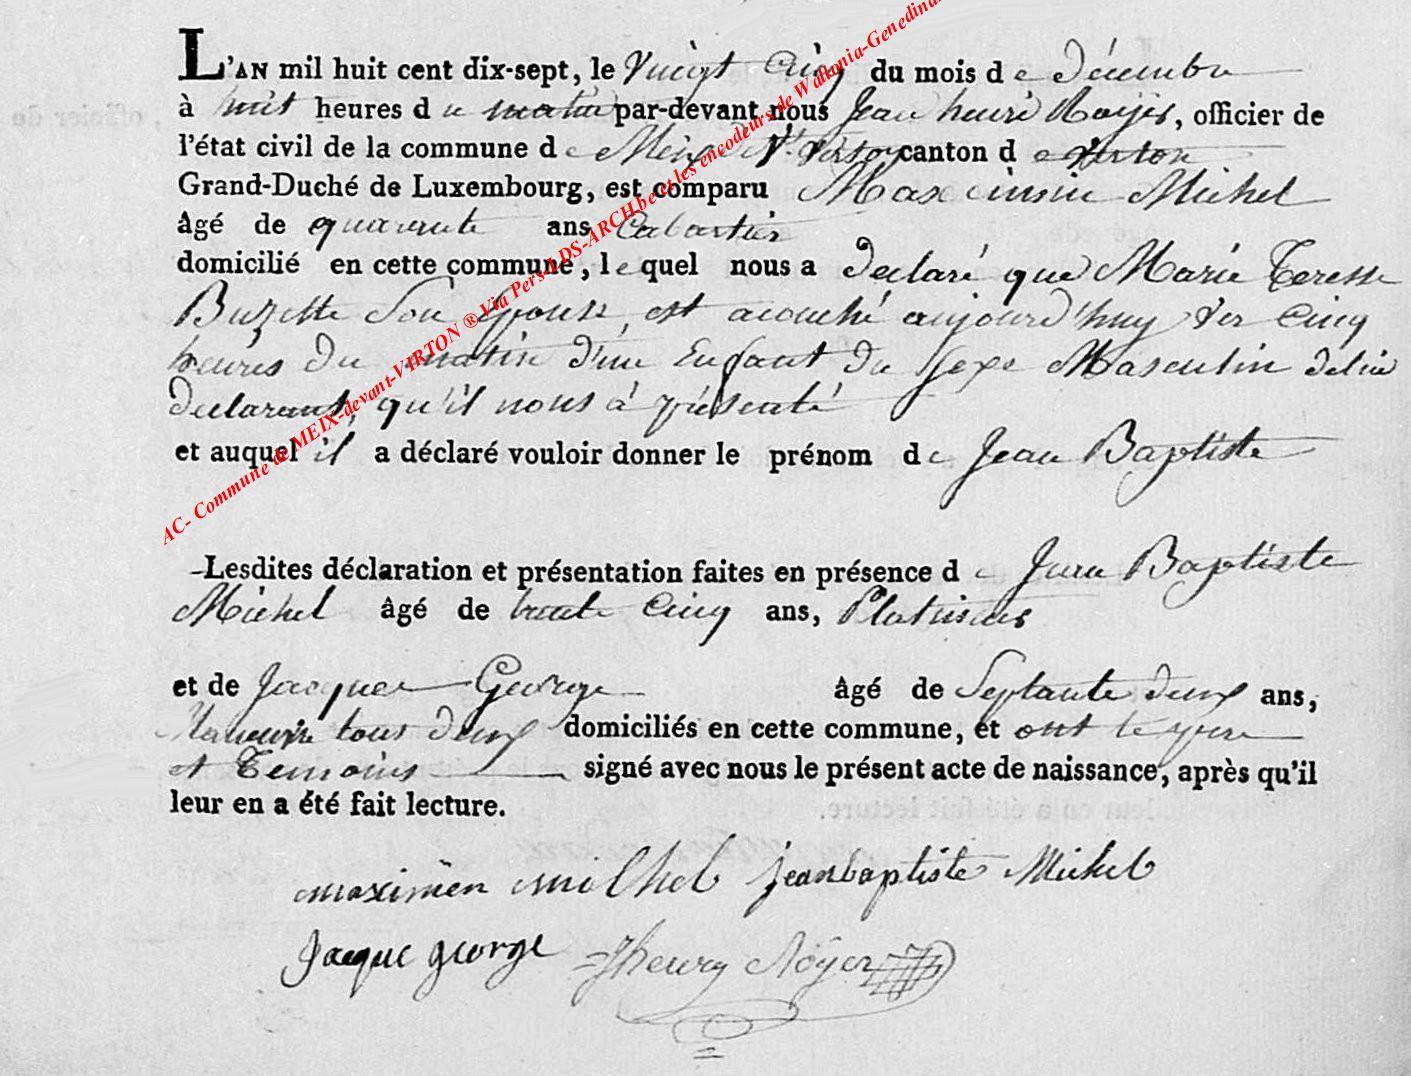 L'AN mil huit cent dix-sept, le Vingt Cinq du mois de décembre
à huit heures du matin par-devant nous Jean henri Noÿer, officier de
l'état civil de la commune de Meix dt Virton canton de Virton
Grand-Duché de Luxembourg, est comparu Maximin Michel
âgé de quarante ans Cabartier
domicilié en cette commune, lequel nous a declaré que Marie Teresse
Buzette Son Epouse, est acouché aujourd'huy vers Cinq
heures du matin d'un Enfant du Sexe Masculin de lui
declarant, qu'il nous à présenté
et auquel il a déclaré vouloir donner le prénom de Jean Baptiste
Lesdites déclaration et présentation faites en présence de Jean Baptiste
Michel âgé de trente Cinq ans,
et de Jacques George âgé de Septante deux ans,
Maneuvre tous deux domiciliés en cette commune, et ont le pere
et Temoins signé avec nous le présent acte de naissance, après qu'il
leur en a été fait lecture.
maximen michel jeanbaptiste Michel
Jacque george Jhenry Noÿer
AC- Commune de MEIX-devant-VIRTON ® Via Pers-LDS-ARCH.be et les encodeurs de Wallonia-Genedina